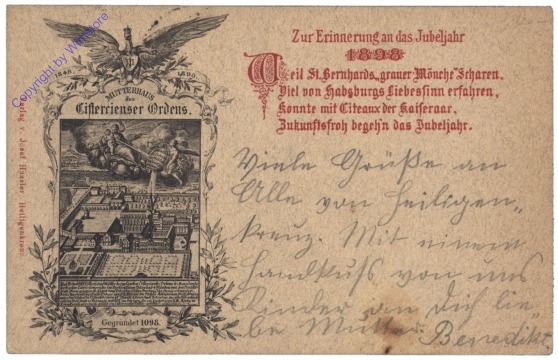 Zur Erinnerung an das Jubeljahr
1898
Weil St. Bernhards „grauer Mönche“ Scharen.
Viel von Habsburgs Liebessinn erfahren,
Konnte mit Citeaux der Kaiseraar,
Zukunftsfroh begeh'n das Jubeljahr.
1848 1898
MUTTERHAUS
des
Cistercienser Ordens.
Gegründet 1098.
Verlag v. Josef Heiligenkreuz.
Copyright by Winstore
Viele Grüße an
Alle von Heiligen„
kreuz. Mit einem
Handkuß von uns
Kinder an Dich lie„
be Mutter. Benedikt.